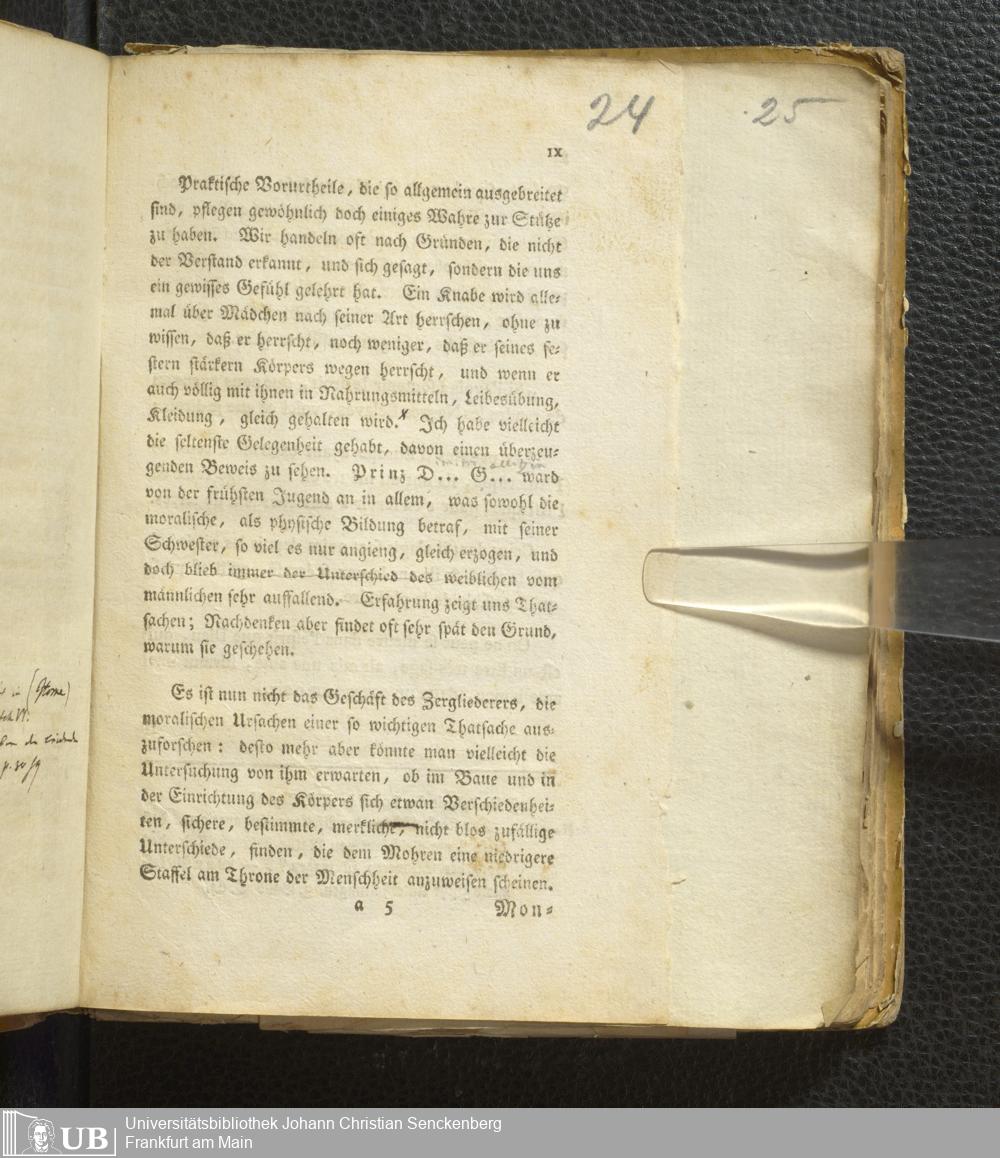 24
25
IX
Praktische Vorurtheile, die so allgemein ausgebreitet
sind, pflegen gewöhnlich doch einiges Wahre zur Stütze
zu haben. Wir handeln oft nach Gründen, die nicht
der Verstand erkannt, und sich gesagt, sondern die uns
ein gewisses Gefühl gelehrt hat. Ein Knabe wird alle-
mal über Mädchen nach seiner Art herrschen, ohne zu
wissen, daß er herrscht, noch weniger, daß er seines fe-
stern stärkern Körpers wegen herrscht, und wenn er
auch völlig mit ihnen in Nahrungsmitteln, Leibesübung,
Kleidung, gleich gehalten wird. Ich habe vielleicht
die seltenste Gelegenheit gehabt, davon einen überzeu-
genden Beweis zu sehen. Prinz D... G... ward
von der frühsten Jugend an in allem, was sowohl die
moralische, als physische Bildung betraf, mit seiner
Schwester, so viel es nur angieng, gleich erzogen, und
doch blieb immer der Unterschied des weiblichen vom
männlichen sehr auffallend. Erfahrung zeigt uns That-
sachen; Nachdenken aber findet oft sehr spät den Grund,
warum sie geschehen.
Es ist nun nicht das Geschäft des Zergliederers, die
moralischen Ursachen einer so wichtigen Thatsache aus-
zuforschen: desto mehr aber könnte man vielleicht die
Untersuchung von ihm erwarten, ob im Baue und in
der Einrichtung des Körpers sich etwan Verschiedenhei-
ten, sichere, bestimmte, merkliche, nicht blos zufällige
Unterschiede, finden, die dem Mohren eine niedrigere
Staffel am Throne der Menschheit anzuweisen scheinen.
a 5
Mon-
UB
Universitätsbibliothek Johann Christian Senckenberg
Frankfurt am Main